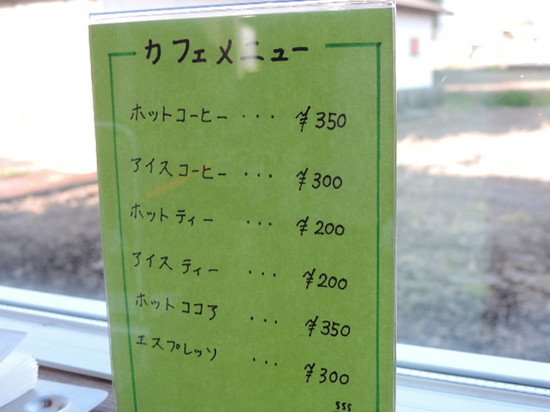 カフェメニュー
ホットコーヒー ・・・ ¥350
アイスコーヒー ・・・ ¥300
ホットティー ・・・ ¥200
アイスティー ・・・ ¥200
ホットココア ・・・ ¥350
エスプレッソ ・・・ ¥300
sss